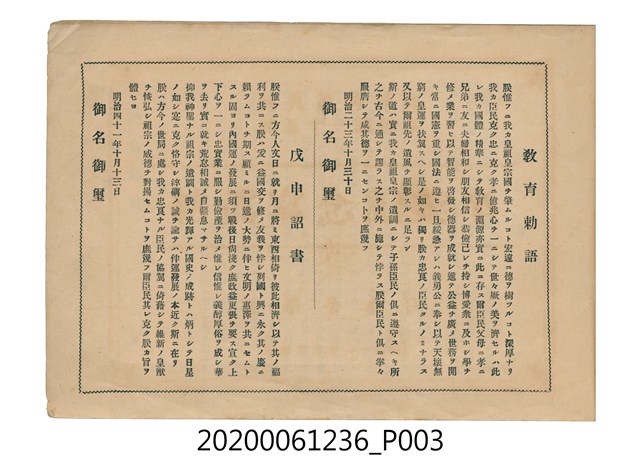 教育勅語
朕惟フニ我カ皇祖皇宗國ヲ肇ムルコト宏遠ニ德ヲ樹ツルコト深厚ナリ
我カ臣民克ク忠ニ克ク孝ニ億兆心ヲ一ニシテ世々厥ノ美ヲ濟セルハ此
レ我カ國體ノ精華ニシテ教育ノ淵源亦實ニ此ニ存ス爾臣民父母ニ孝ニ
兄弟ニ友ニ夫婦相和シ朋友相信シ恭儉己レヲ持シ博愛衆ニ及ホシ學ヲ
修メ業ヲ習ヒ以テ智能ヲ啓發シ德器ヲ成就シ進テ公益ヲ廣メ世務ヲ開
キ常ニ國憲ヲ重シ國法ニ遵ヒ一旦緩急アレハ義勇公ニ奉シ以テ天壤無
窮ノ皇運ヲ扶翼スヘシ是ノ如キハ獨リ朕カ忠良ノ臣民タルノミナラス
又以テ爾祖先ノ遺風ヲ顯彰スルニ足ラン
斯ノ道ハ實ニ我カ皇祖皇宗ノ遺訓ニシテ子孫臣民ノ俱ニ遵守スヘキ所
之ヲ古今ニ通シテ謬ラス之ヲ中外ニ施シテ悖ラス朕爾臣民ト俱ニ拳々
服膺シテ咸其德ヲ一ニセンコトヲ庶幾フ
明治二十三年十月三十日
御名御璽
戊申詔書
朕惟フニ方今人文日ニ就リ月ニ將ミ東西相倚リ彼此相濟シ以テ其ノ福
利ヲ共ニス朕ハ爰ニ益國交ヲ修メ友義ヲ惇シ列國ト與ニ永ク其ノ慶ニ
賴ラムコトヲ期ス顧ミルニ日進ノ大勢ニ伴ヒ文明ノ惠澤ヲ共ニセムト
スル固ヨリ內國運ノ發展ニ須ツ戰後日尙淺ク庶政益更張ヲ要ス宜ク上
下心ヲ一ニシ忠實業ニ服シ勤儉產ヲ治メ惟レ信惟レ義醇厚俗ヲ成シ華
ヲ去リ實ニ就キ荒怠相誡メ自彊息マサルヘシ
抑我神聖ナル祖宗ノ遺訓ト我カ光輝アル國史ノ成跡トハ炳トシテ日星
ノ如シ寔ニ克ク恪守シ淬礪ノ誠ヲ諭サハ國運發展ノ本近ク斯ニ在リ
朕ハ方今ノ世局ニ處シ我カ忠良ナル臣民ノ協翼ニ倚藉シテ維新ノ皇猷
ヲ恢弘シ祖宗ノ威德ヲ對揚セムコトヲ庶幾フ爾臣民其レ克ク朕カ旨ヲ
體セヨ
明治四十一年十月十三日
御名御璽
20200061236_P003